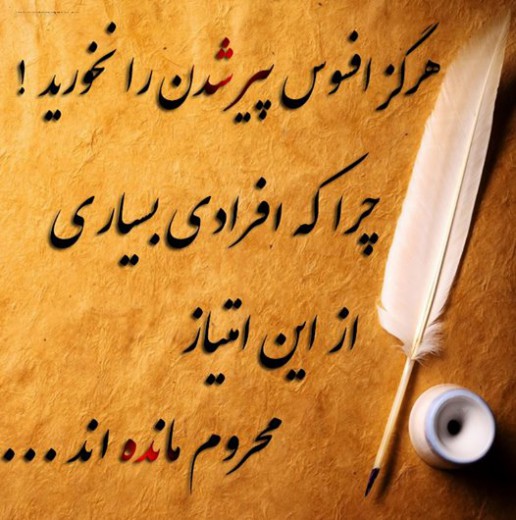 هرگز افسوس پیر شدن را نخورید !
چرا که افرادی بسیاری
از این امتیاز
محروم مانده اند ...